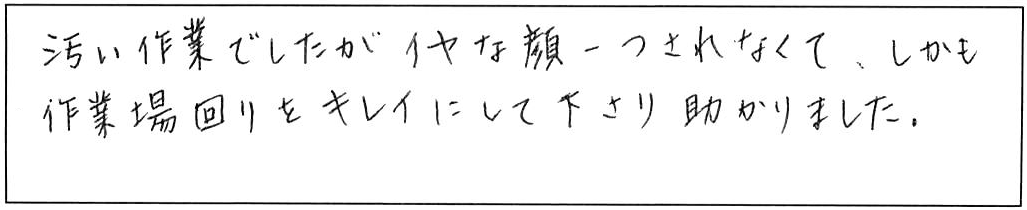 汚い作業でしたがイヤな顔一つされなくて、しかも
作業場回りをキレイにして下さり助かりました。